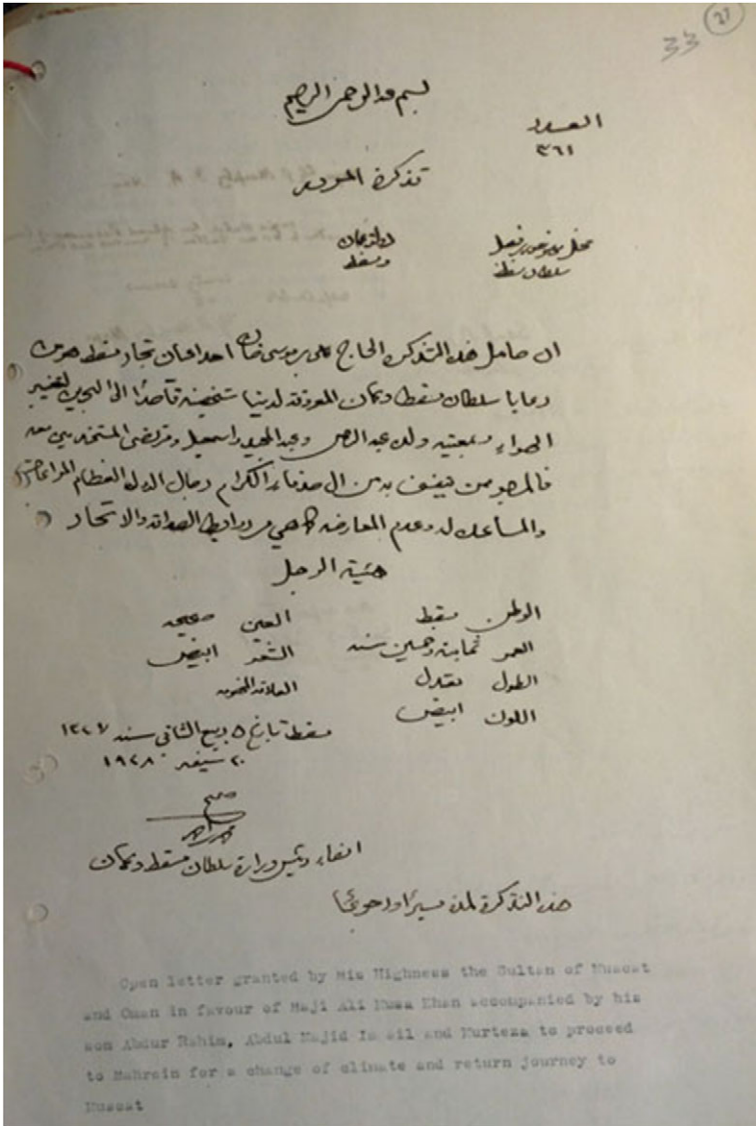 33 21
بسم الله الرحمن الرحيم
العدد
٣٦١
تذكرة المرور
محل
سلطان مسقط ومسقط
ان حامل هذه التذكرة الحاج علي بن موسى خان احد اعيان تجار مسقط هو من
رعايا سلطان مسقط وعمان المعروفة لدينا شخصيته قاصدًا الى البحرين لتغيير
الهواء وبمعيته ولده عبد الرحيم وعبد المجيد واسمعيل ومرتضى المستخدمين معه
فالمرجو ممن يقف به من الاصدقاء الكرام ورجال الدول العظام المراعاة
والمساعدة له وعدم المعارضة كما هي من روابط الصداقة والاتحاد
هيئة الرجل
الوطن مسقط العين صحيحه
العمر ثمانية وخمسين سنه الشعر ابيض
الطول معتدل العلاقة المخصوصه
اللون ابيض
مسقط تاريخ ٥ ربيع الثاني سنه ١٣٤٧
٢٠ ١٩٢٨
صحيح
امضاء رئيس وزارة سلطان مسقط وعمان
هذه التذكرة
Open letter granted by His Highness the Sultan of Muscat
and Oman in favour of Haji Ali Musa Khan accompanied by his
son Abdur Rahim, Abdul Majid Ismail and Murteza to proceed
to Bahrein for a change of climate and return journey to
Muscat